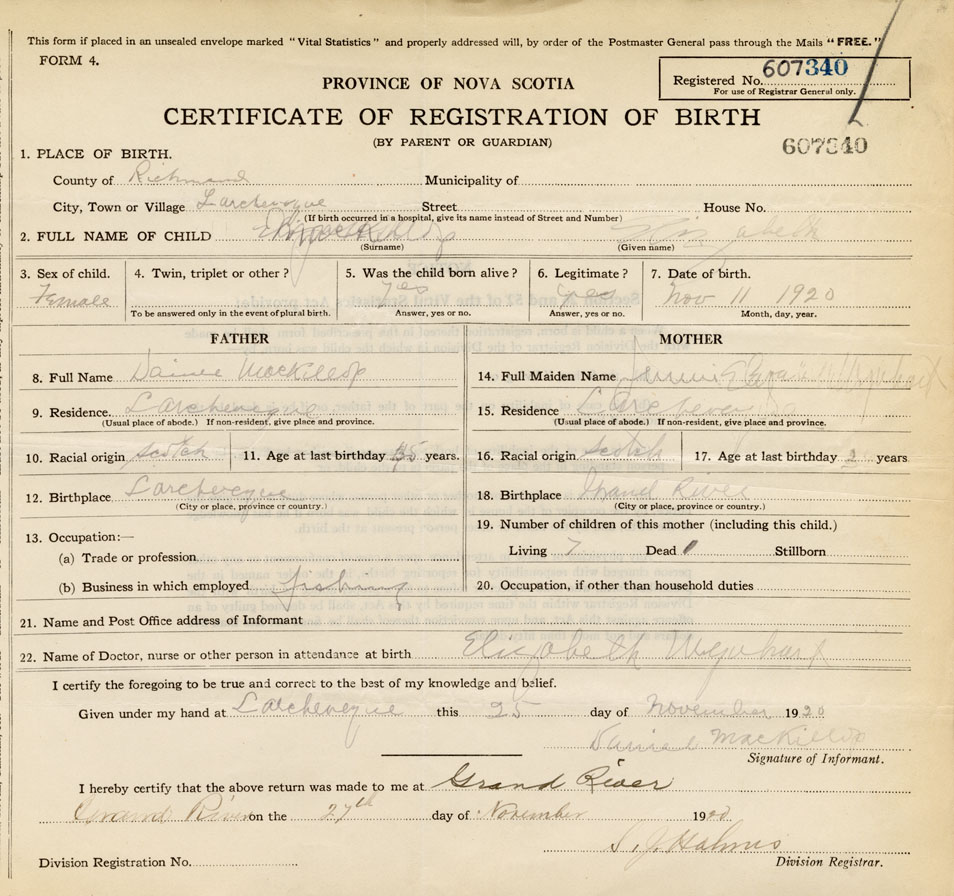 This form if placed in an unsealed envelope marked "Vital Statistics" and properly addressed will, by order of the Postmaster General pass through the Mails "FREE."
FORM 4.
Registered No. 607340
For use of Registrar General only.
PROVINCE OF NOVA SCOTIA
CERTIFICATE OF REGISTRATION OF BIRTH
(BY PARENT OR GUARDIAN)
607340
1. PLACE OF BIRTH.
County of Richmond Municipality of
City, Town or Village Larcheveque Street House No.
(If birth occurred in a hospital, give its name instead of Street and Number)
2. FULL NAME OF CHILD MacKillop Elizabeth
(Surname) (Given name)
3. Sex of child. 4. Twin, triplet or other? 5. Was the child born alive? 6. Legitimate? 7. Date of birth.
Female yes yes Nov 11 1920
To be answered only in the event of plural birth. Answer, yes or no. Answer, yes or no. Month, day, year.
FATHER MOTHER
8. Full Name MacKillop 14. Full Maiden Name
9. Residence Larcheveque 15. Residence
(Usual place of abode.) If non-resident, give place and province. (Usual place of abode.) If non-resident, give place and province.
10. Racial origin Scotch 11. Age at last birthday years. 16. Racial origin Scotch 17. Age at last birthday years
12. Birthplace Larcheveque 18. Birthplace Grand River
(City or place, province or country.) (City or place, province or country.)
13. Occupation:— 19. Number of children of this mother (including this child.)
(a) Trade or profession Living 7 Dead Stillborn
(b) Business in which employed fishing 20. Occupation, if other than household duties
21. Name and Post Office address of Informant
22. Name of Doctor, nurse or other person in attendance at birth Elizabeth
I certify the foregoing to be true and correct to the best of my knowledge and belief.
Given under my hand at Larcheveque this 25 day of November 1920
MacKillop
Signature of Informant.
I hereby certify that the above return was made to me at Grand River
Grand River on the 27th day of November 1920
Division Registration No. Division Registrar.